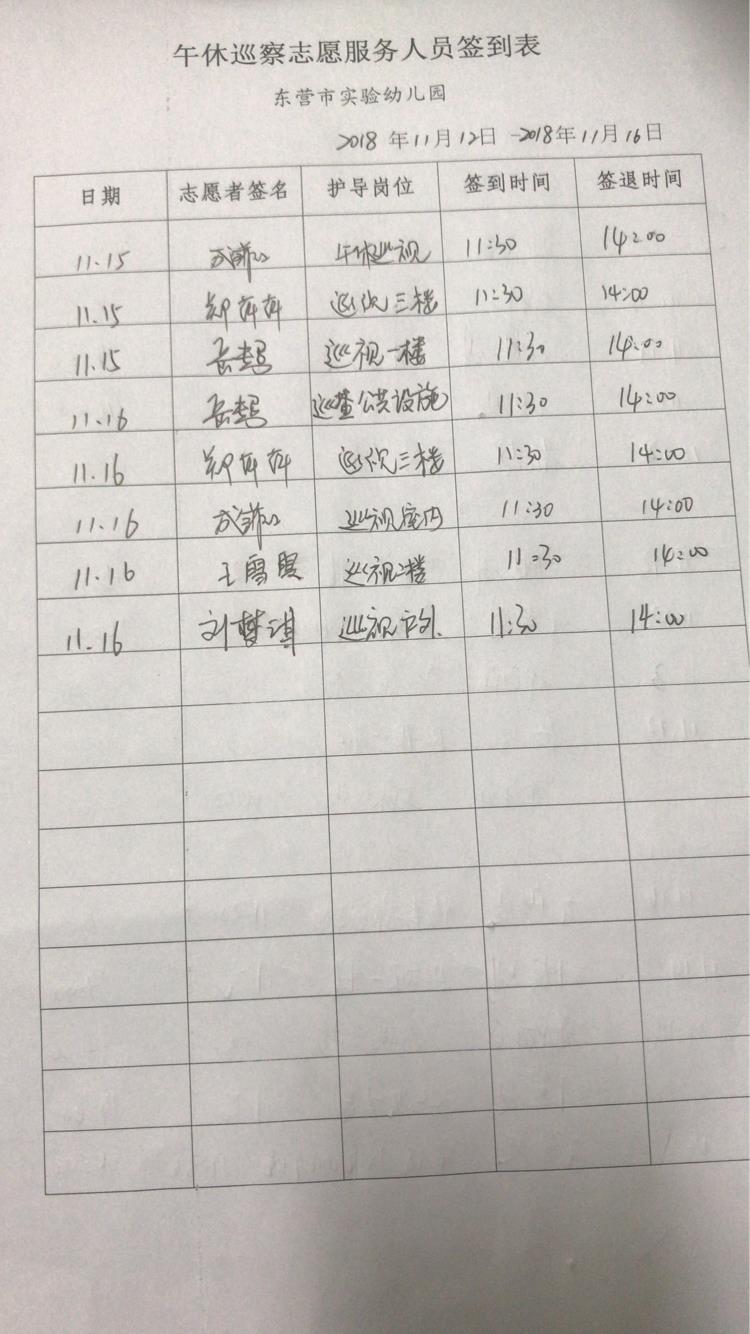 午休巡察志愿服务人员签到表
东营市实验幼儿园
2018年11月12日-2018年11月16日
日期 志愿者签名 护导岗位 签到时间 签退时间
11.15 午休巡视 11:30 14:00
11.15 郑苒苒 巡视三楼 11:30 14:00
11.15 岳梦 巡视一楼 11:30 14:00
11.16 岳梦 巡查公共设施 11:30 14:00
11.16 郑苒苒 巡视三楼 11:30 14:00
11.16 巡视室内 11:30 14:00
11.16 王雪 巡视二楼 11:30 14:00
11.16 刘梦琪 巡视户外 11:30 14:00